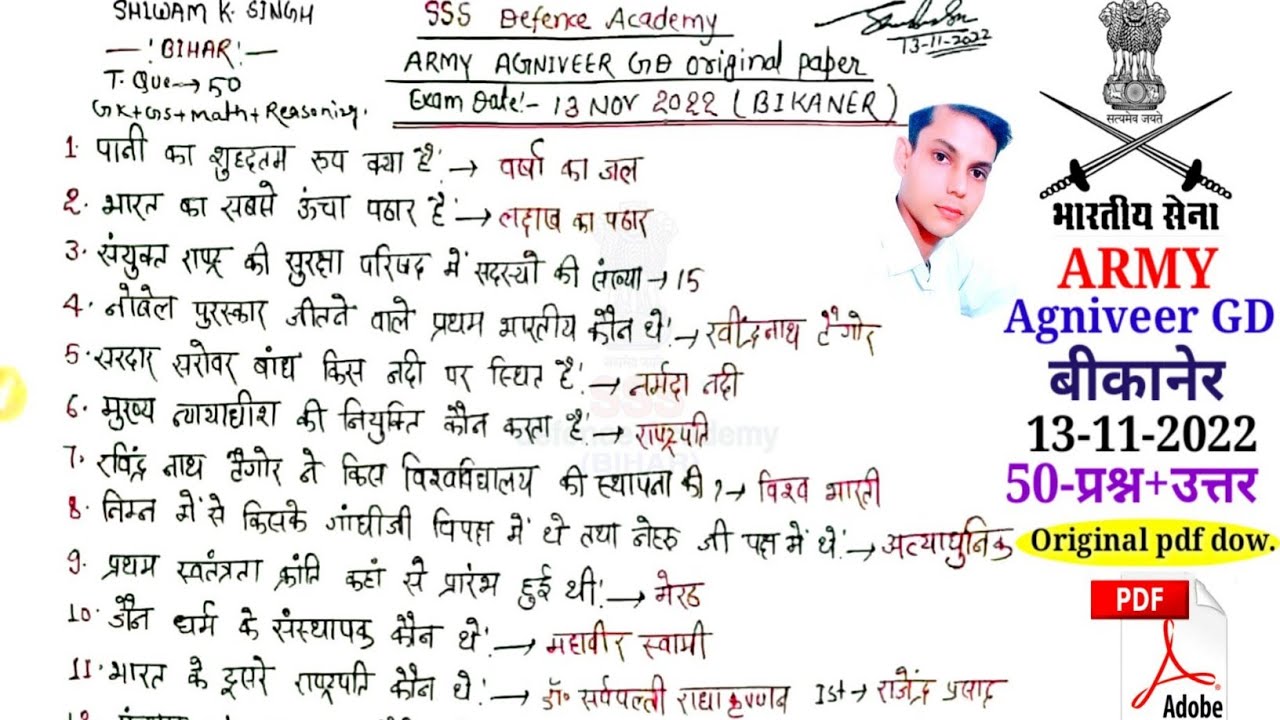 SHIWAM K. SINGH
—! BIHAR! —
T. Que → 50
GK+GS+math+Reasoning.
SSS Defence Academy
ARMY AGNIVEER GD original paper
Exam Date:- 13 NOV 2022 (BIKANER)
13-11-2022
1. पानी का शुद्धतम रूप क्या है → वर्षा का जल
2. भारत का सबसे ऊंचा पठार है → लद्दाख का पठार
3. संयुक्त राष्ट्र की सुरक्षा परिषद में सदस्यो की संख्या → 15
4. नोबेल पुरस्कार जीतने वाले प्रथम भारतीय कौन थे → रवीन्द्रनाथ टैगोर
5. सरदार सरोवर बांध किस नदी पर स्थित है → नर्मदा नदी
6. मुख्य न्यायाधीश की नियुक्ति कौन करता है → राष्ट्रपति
7. रविंद्र नाथ टैगोर ने किस विश्वविद्यालय की स्थापना की? → विश्व भारती
8. निम्न में से किसके गांधीजी विपक्ष में थे तथा नेहरू जी पक्ष में थे → अत्याधुनिक
9. प्रथम स्वतंत्रता क्रांति कहां से प्रारंभ हुई थी → मेरठ
10. जैन धर्म के संस्थापक कौन थे → महावीर स्वामी
11. भारत के दूसरे राष्ट्रपति कौन थे → डॉ॰ सर्वपल्ली राधाकृष्णन Ist → राजेंद्र प्रसाद
SSS
Defence Academy
(BIHAR)
सत्यमेव जयते
भारतीय सेना
ARMY
Agniveer GD
बीकानेर
13-11-2022
50-प्रश्न+उत्तर
Original pdf dow.
PDF
Adobe